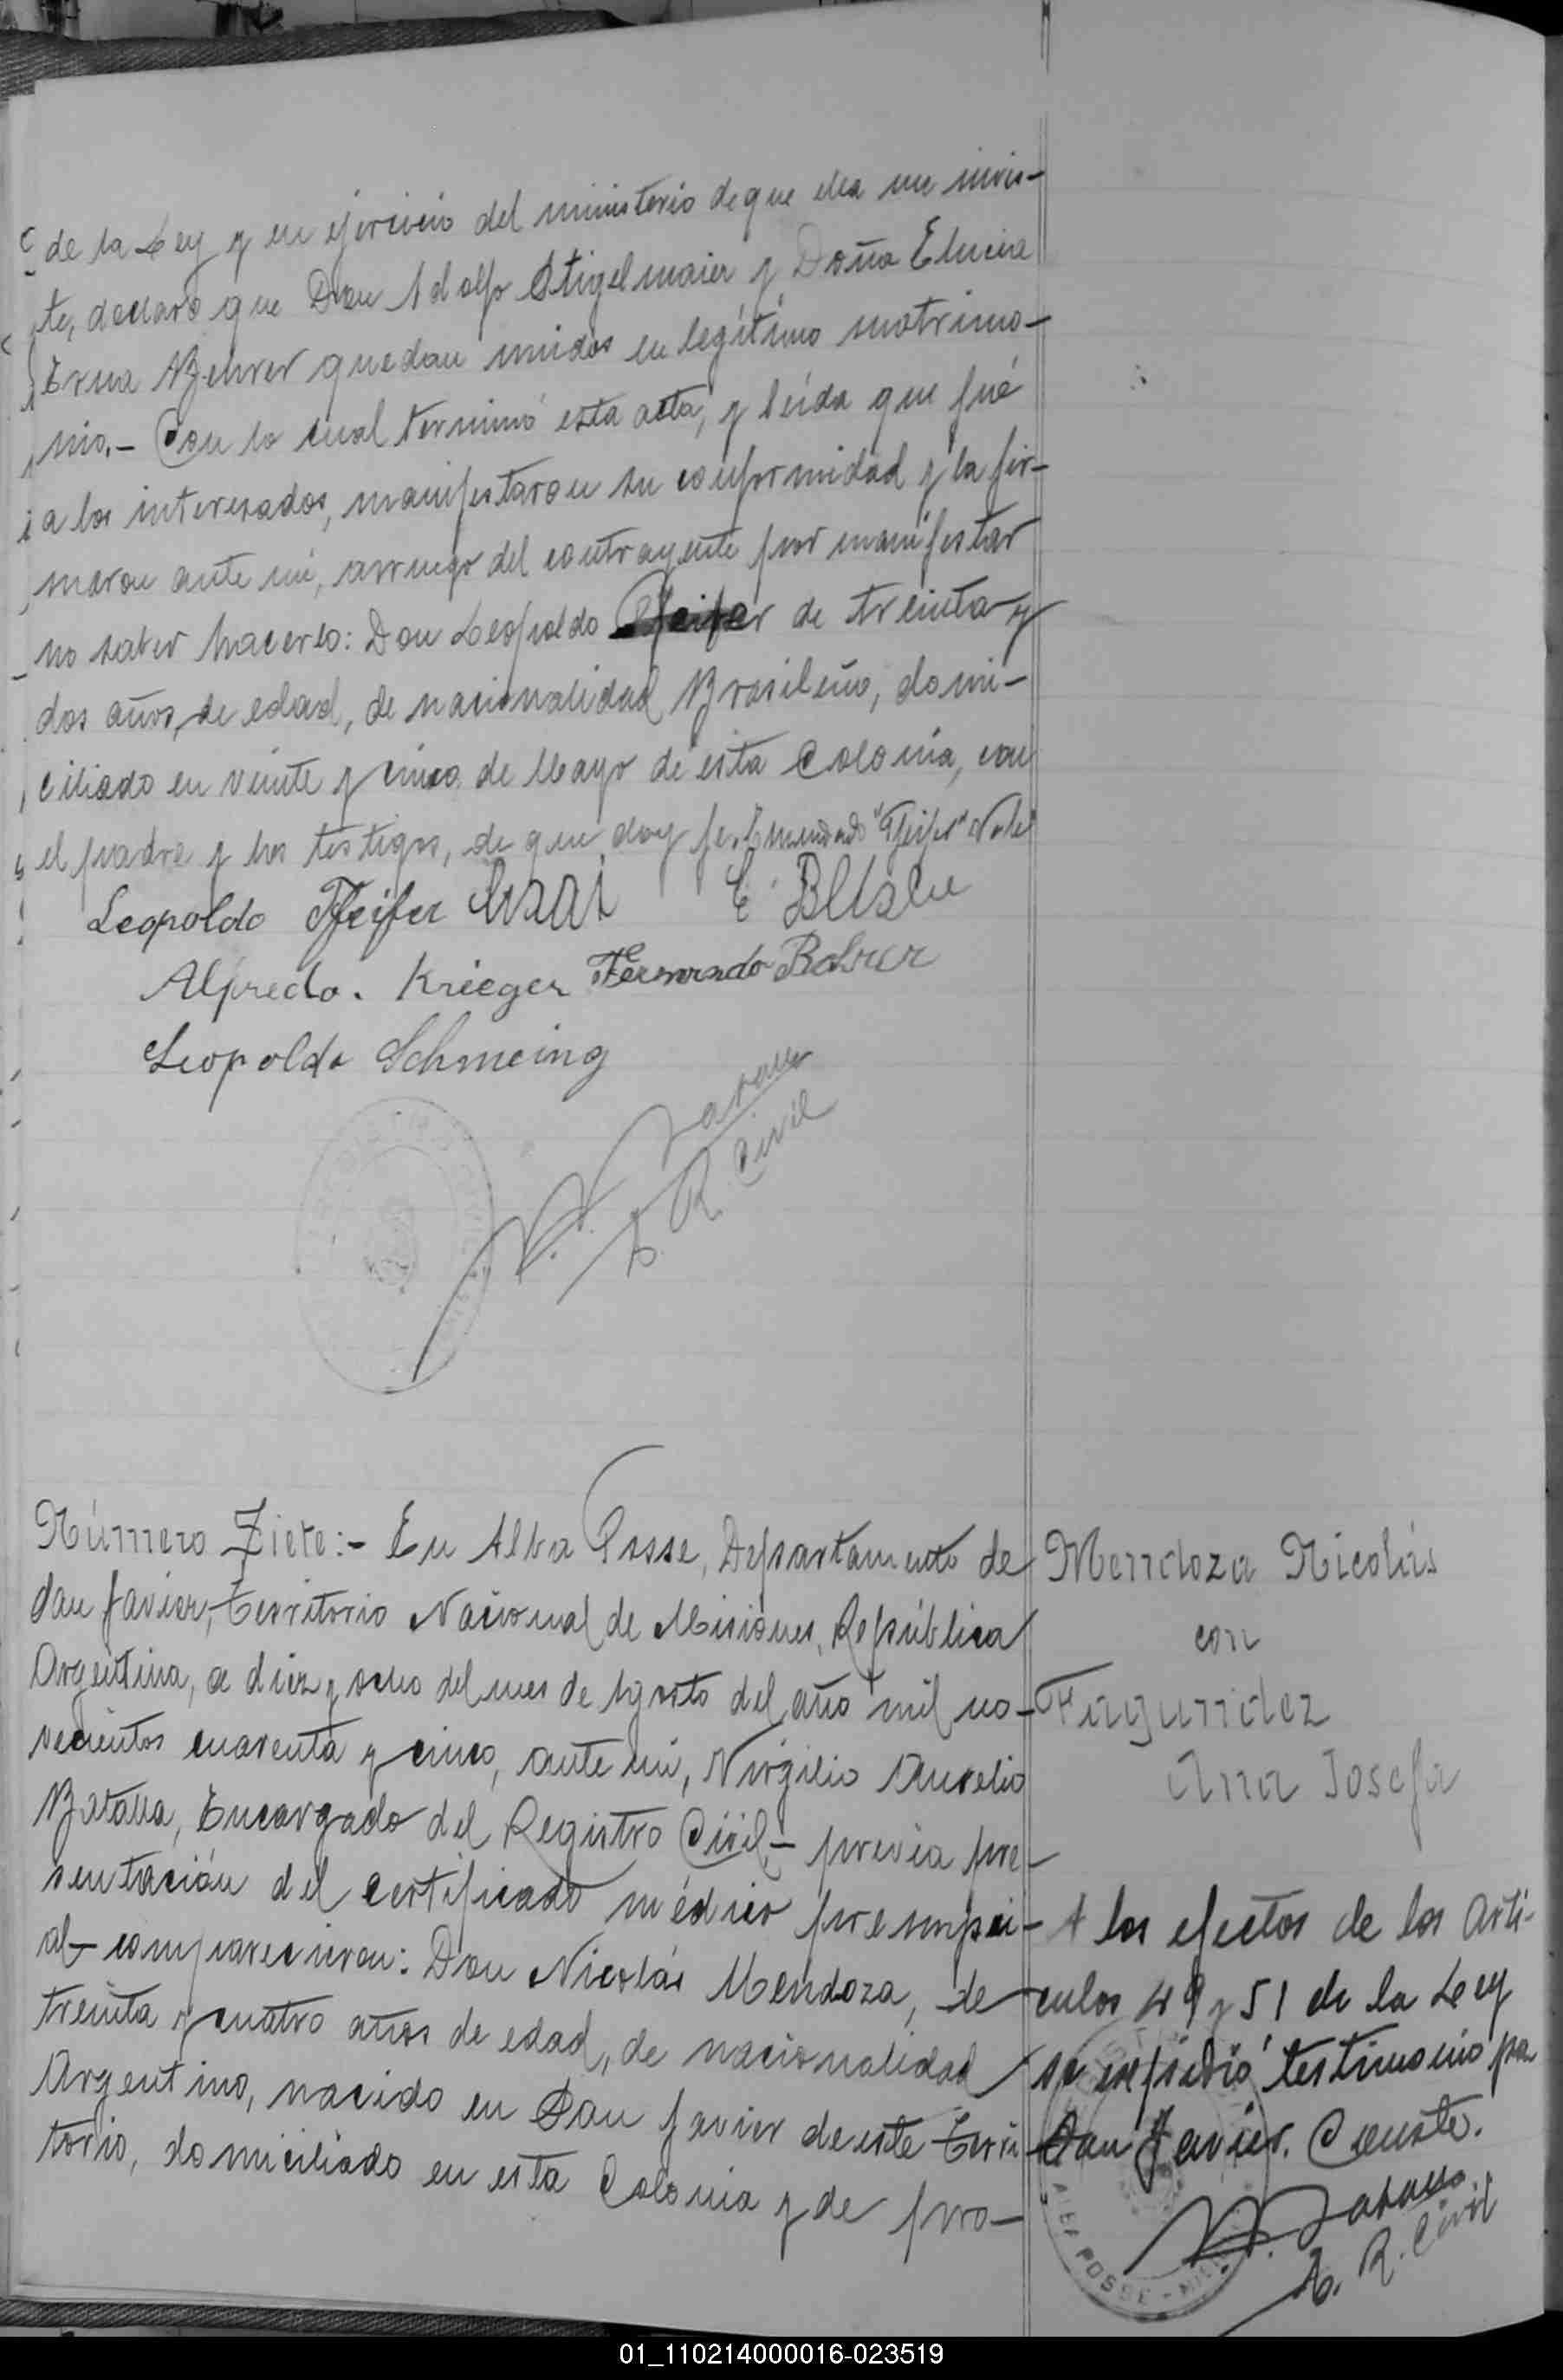 de la Ley y en ejercicio del ministerio de que ella me invis-
te, declaro que Don Adolfo Stigelmaier y Doña
Erna quedan unidos en legítimo matrimo-
nio.- Con lo cual terminó esta acta, y leída que fué
a los interesados, manifestaron su conformidad y la fir-
maron ante mí, a rruego del contrayente por manifestar
no saber hacerlo: Don Leopoldo Pfeifer de treinta y
dos años, de edad, de nacionalidad Brasileño, domi-
ciliado en veinte y cinco de Mayo de esta Colonia, con
el padre y los testigos, de que doy fe. Enmendado "Pfeifer" Vale
Leopoldo Pfeifer
Alfredo. Krieger Fernando
Leopoldo Schmeing
V. A. Batalla
E. R. Civil
Número Siete:- En Alba Posse, Departamento de
San Javier, Territorio Nacional de Misiones, República
Argentina, a diez y ocho del mes de Agosto del año mil no-
vecientos cuarenta y cinco, ante mí, Virgilio Aurelio
Batalla, Encargado del Registro Civil,- previa pre-
sentación del certificado médico prenupci-
al- comparecieron: Don Nicolás Mendoza, de
treinta y cuatro años de edad, de nacionalidad
Argentino, nacido en San Javier de este Terri
torio, domiciliado en esta Colonia y de pro-
Mendoza Nicolás
con
Fagundez
Ana Josefa
A los efectos de los Artí-
culos 49 y 51 de la Ley
se expidió testimonio pa
San Javier. Conste.
V. A. Batalla
E. R. Civil
ALBA POSSE
01_110214000016-023519